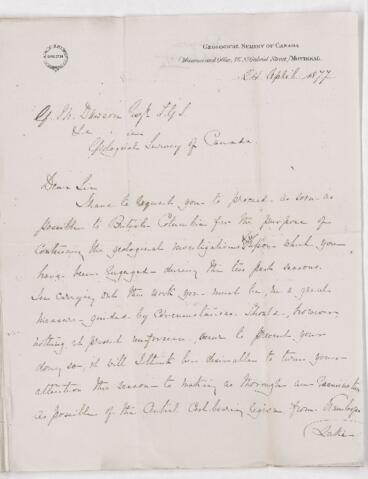 GEOLOGICAL SURVEY OF CANADA
Museum and Office, 76, St Gabriel Street, MONTREAL
24 April 1877
G. M. Dawson Esqr F.G.S.
&c &c
Geological Survey of Canada
Dear Sir
I have to request you to proceed as soon as
possible to British Columbia for the purpose of
continuing the geological investigations upon which you
have been engaged during the two past seasons.
In carrying out the work you must be, in a great
measure guided by circumstances. Should, however
nothing at present unforeseen, occur to prevent your
doing so, it will I think be desirable to turn your
attention this season to making as thorough an Examination
as possible of the Coal bearing region from Kamloops
Lake